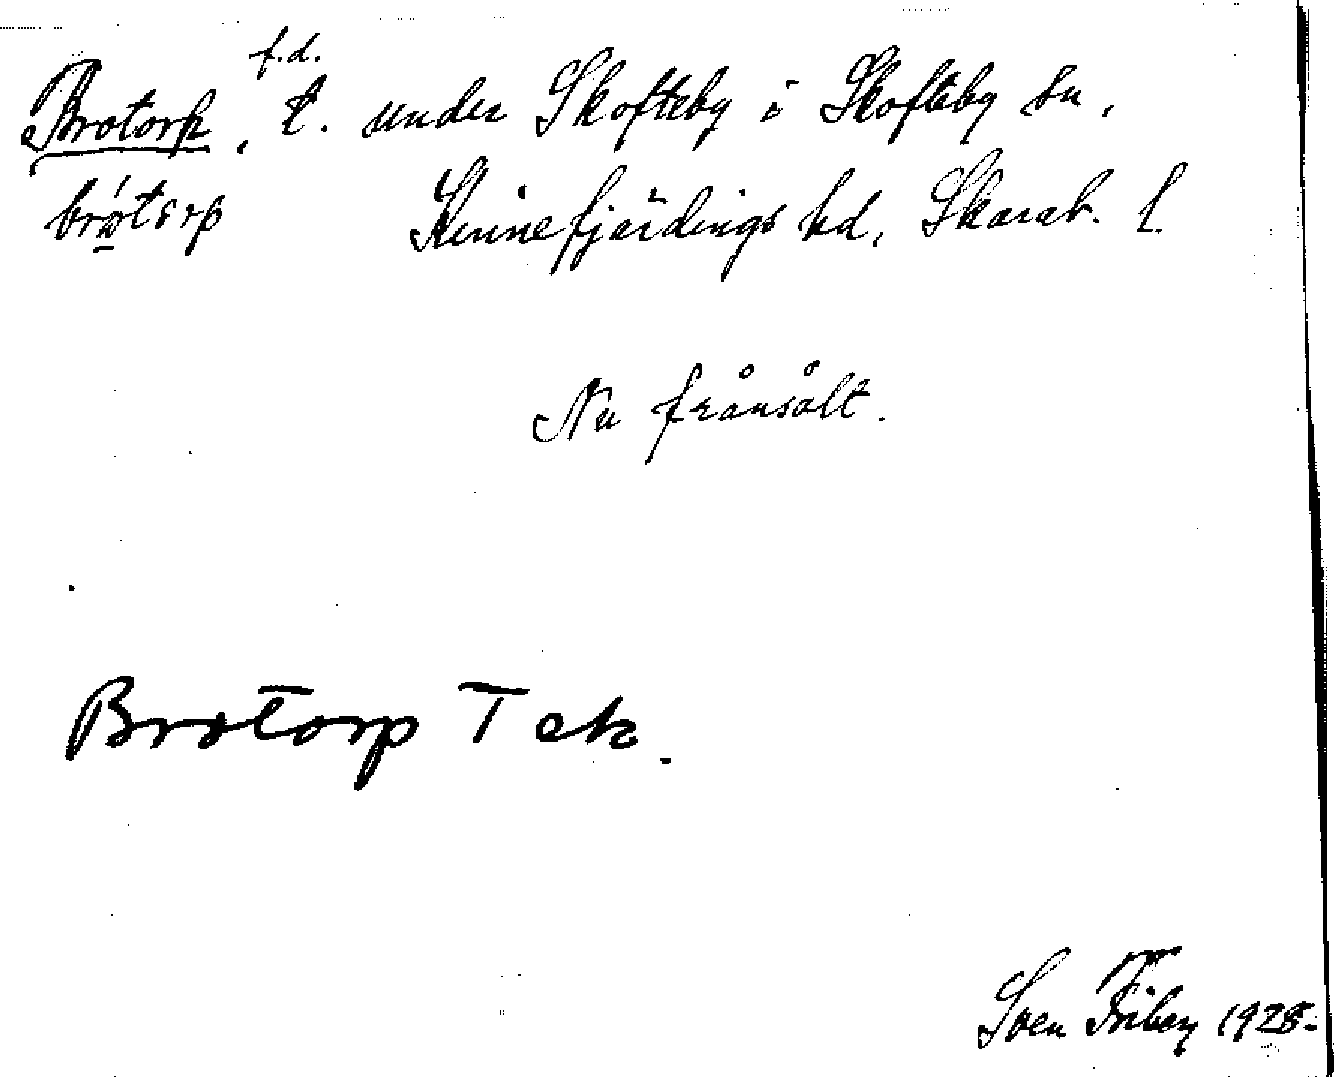 Brotorp, f.d. t. under Skofteby i Skofteby sn,
Kinnefjärdings hd, Skarab. l.
Nu frånsålt.
Brotorp Tek.
Sven Friberg